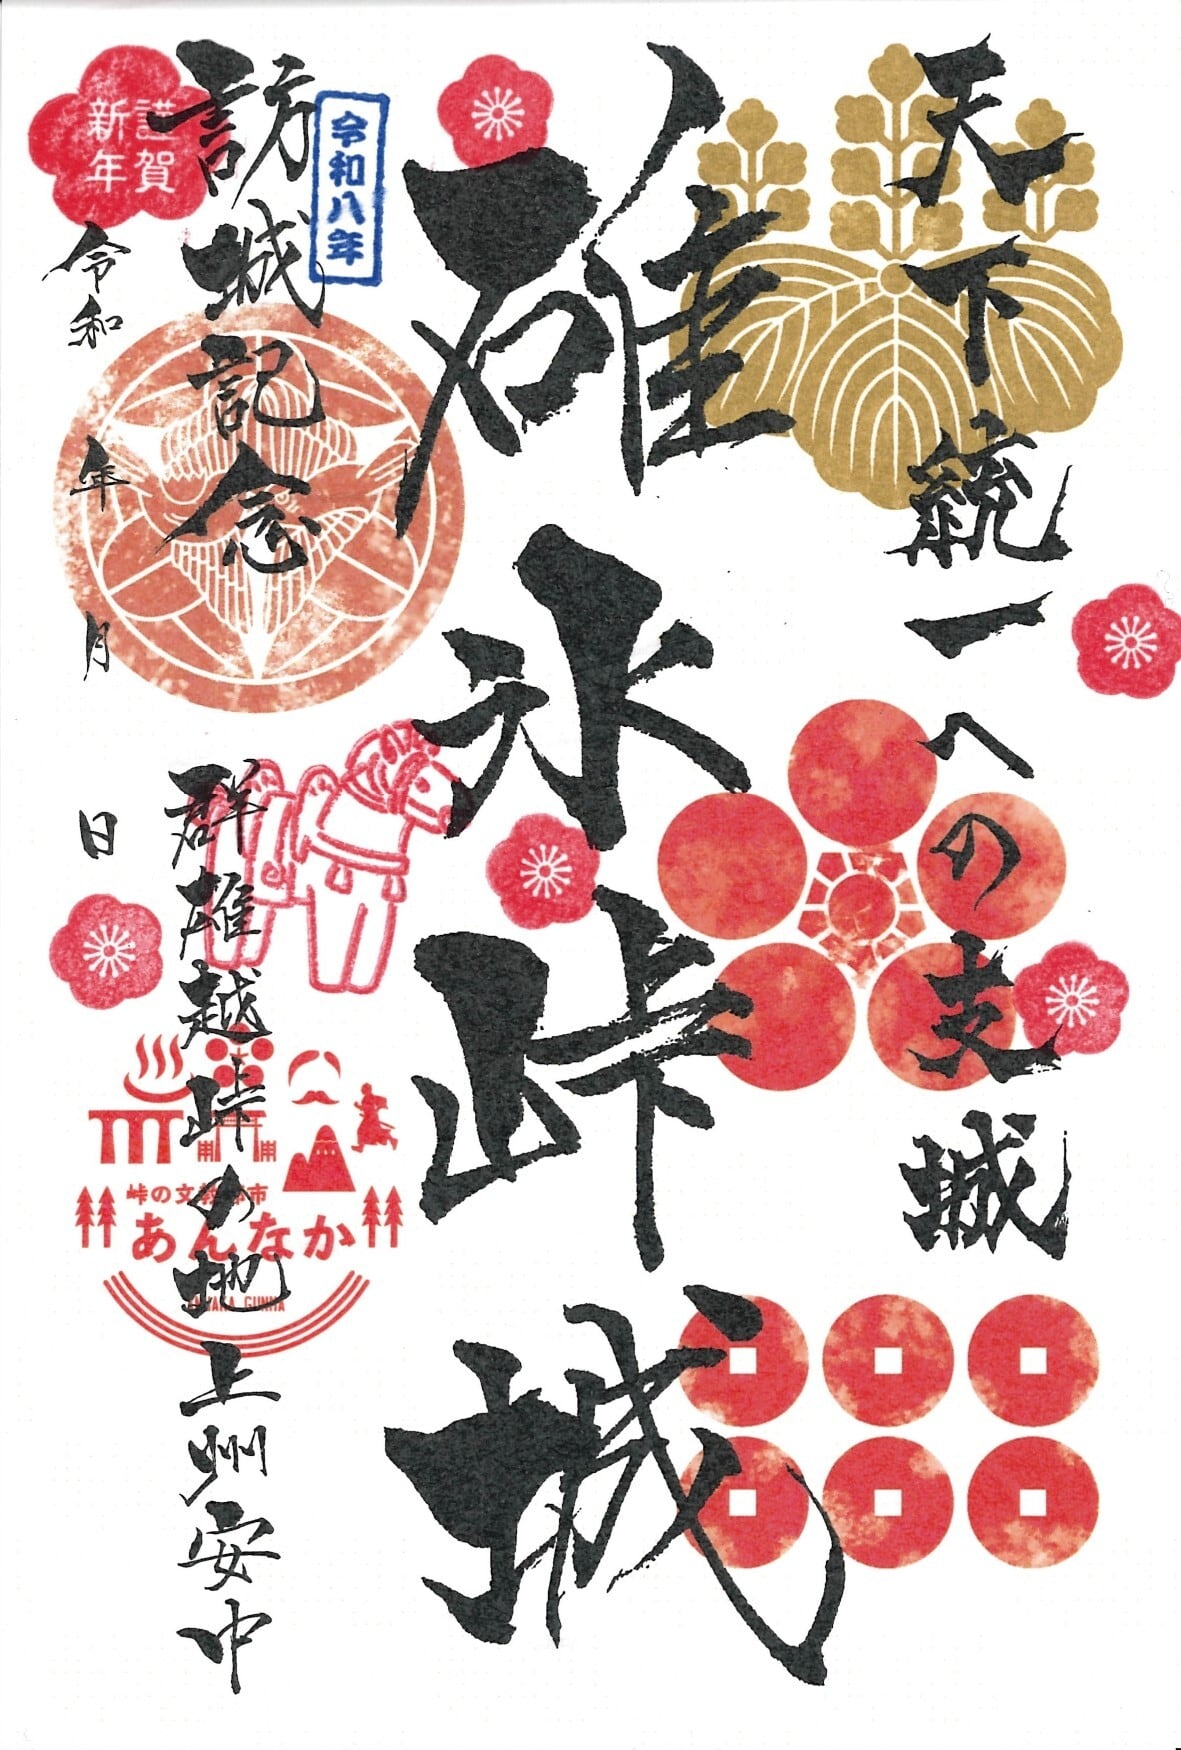 天下統一への支城
碓氷峠城
令和八年
訪城記念
群雄越峠の地
上州安中
謹賀
新年
令和 年 月 日
峠の文教都市
あんなか
GUNMA